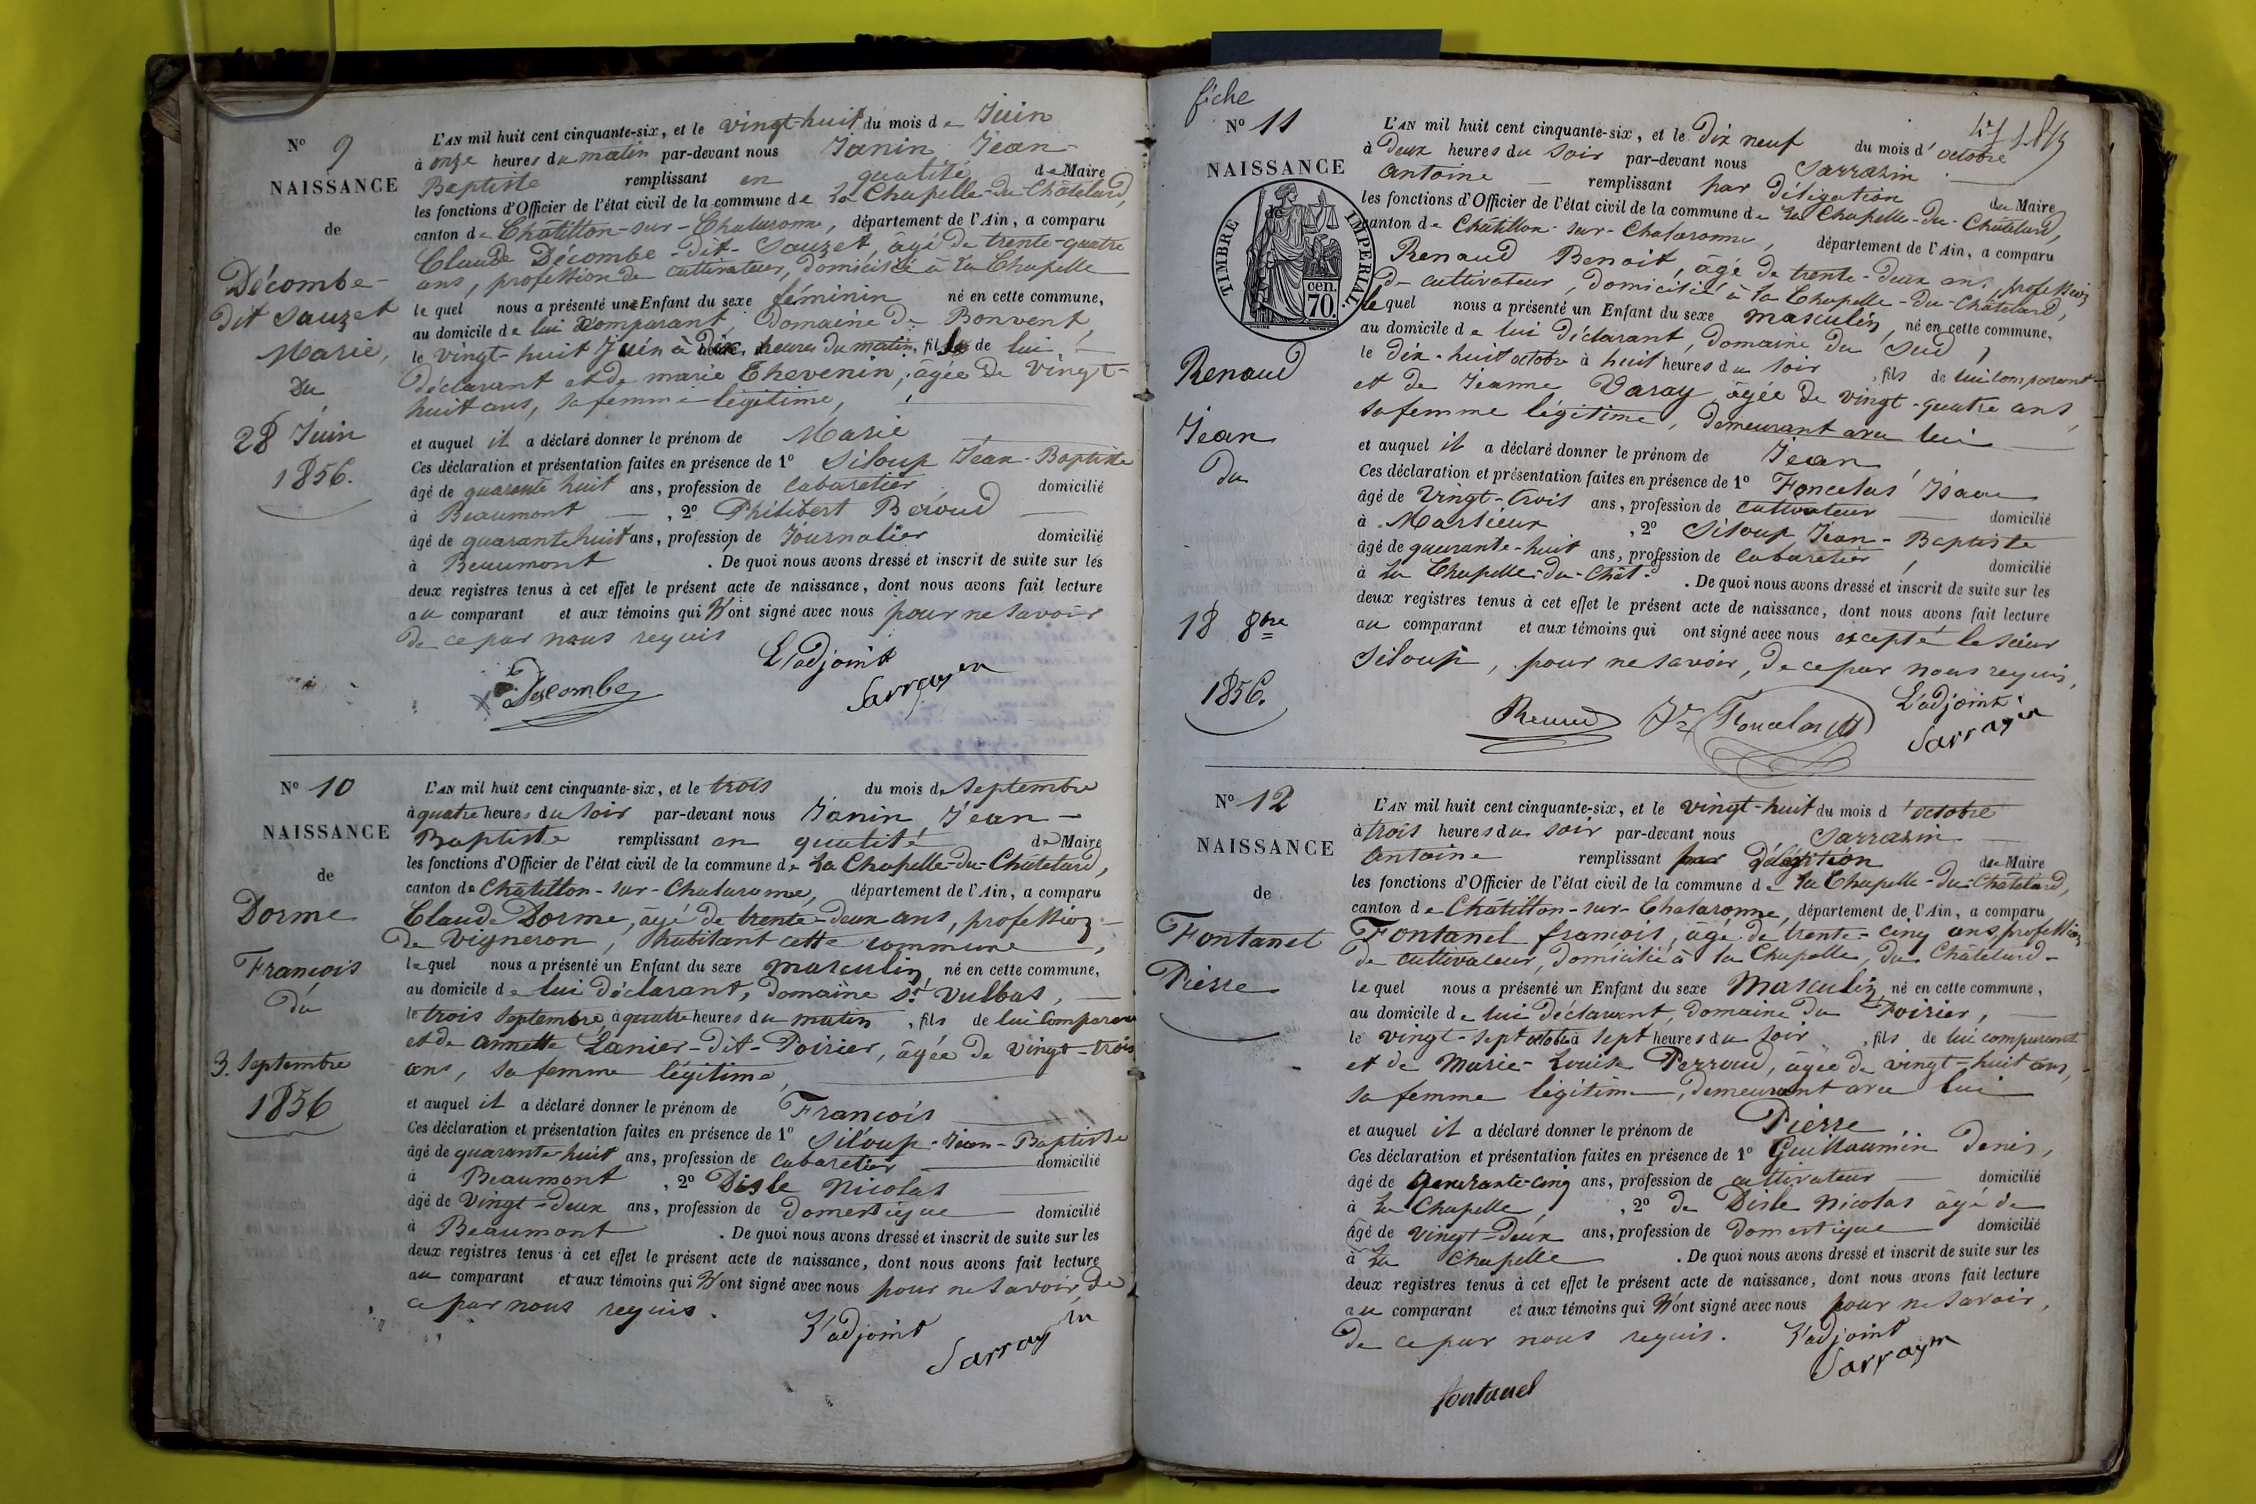 N° 9
NAISSANCE
de
Décombe-
dit Sauzet
Marie,
du
28 Juin
1856.
L'AN mil huit cent cinquante-six, et le vingt-huit du mois de Juin
à onze heures du matin par-devant nous Janin Jean-
Baptiste remplissant en qualité de Maire
les fonctions d'Officier de l'état civil de la commune de La Chapelle-du-Châtelard,
canton de Châtillon-sur-Chalaronne, département de l'Ain, a comparu
Claude Décombe-dit-Sauzet, âgé de trente-quatre
ans, profession de cultivateur, domicilié à La Chapelle
le quel nous a présenté une Enfant du sexe féminin né en cette commune,
au domicile de lui comparant, domaine de Bonvent,
le vingt-huit Juin à dix heures du matin, fille de lui
déclarant et de marie Thevenin, âgée de vingt-
huit ans, sa femme légitime,
et auquel il a déclaré donner le prénom de Marie
Ces déclaration et présentation faites en présence de 1° Siloup Jean-Baptiste
âgé de quarante huit ans, profession de cabaretier domicilié
à Beaumont, 2° Philibert Béroud
âgé de quarante huit ans, profession de Journalier domicilié
à Beaumont. De quoi nous avons dressé et inscrit de suite sur les
deux registres tenus à cet effet le présent acte de naissance, dont nous avons fait lecture
au comparant et aux témoins qui n'ont signé avec nous pour ne savoir
de ce par nous requis
L'adjoint
Descombe
Sarrazin
N° 10
NAISSANCE
de
Dorme
François
du
3. Septembre
1856
L'AN mil huit cent cinquante-six, et le trois du mois de Septembre
à quatre heures du soir par-devant nous Janin Jean-
Baptiste remplissant en qualité de Maire
les fonctions d'Officier de l'état civil de la commune de La Chapelle-du-Châtelard,
canton de Châtillon-sur-Chalaronne, département de l'Ain, a comparu
Claude Dorme, âgé de trente-deux ans, profession
de Vigneron, habitant cette commune,
le quel nous a présenté un Enfant du sexe masculin né en cette commune,
au domicile de lui déclarant, domaine St Vulbas,
le trois Septembre à quatre heures du matin, fils de lui comparant
et de annette Lanier-dit-Poirier, âgée de vingt-trois
ans, sa femme légitime,
et auquel il a déclaré donner le prénom de François
Ces déclaration et présentation faites en présence de 1° Siloup-Jean-Baptiste
âgé de quarante-huit ans, profession de cabaretier domicilié
à Beaumont, 2° Disle Nicolas
âgé de vingt-deux ans, profession de domestique domicilié
à Beaumont. De quoi nous avons dressé et inscrit de suite sur les
deux registres tenus à cet effet le présent acte de naissance, dont nous avons fait lecture
au comparant et aux témoins qui n'ont signé avec nous pour ne savoir, de
ce par nous requis.
L'adjoint
Sarrazin
fiche
N° 11
NAISSANCE
TIMBRE IMPÉRIAL
cen.
70.
Renaud
Jean
du
18 8bre
1856.
L'AN mil huit cent cinquante-six, et le dix neuf du mois d'octobre
à deux heures du soir par-devant nous Sarrazin
antoine remplissant par déligation du Maire
les fonctions d'Officier de l'état civil de la commune de La Chapelle-du-Châtelard,
canton de Châtillon-sur-Chalaronne, département de l'Ain, a comparu
Renaud Benoit, âgé de trente-deux ans, profession
de cultivateur, domicilié à la Chapelle-du-Châtelard,
le quel nous a présenté un Enfant du sexe masculin, né en cette commune,
au domicile de lui déclarant, domaine du Sud,
le dix-huit octobre à huit heures du soir, fils de lui comparant
et de Jeanne Varay, âgée de vingt-quatre ans,
sa femme légitime, demeurant avec lui
et auquel il a déclaré donner le prénom de Jean
Ces déclaration et présentation faites en présence de 1° Foncelas Isaac
âgé de vingt-trois ans, profession de cultivateur domicilié
à Marlieux, 2° Siloup Jean-Baptiste
âgé de quarante-huit ans, profession de cabaretier, domicilié
à La Chapelle-du-Chât.d. De quoi nous avons dressé et inscrit de suite sur les
deux registres tenus à cet effet le présent acte de naissance, dont nous avons fait lecture
au comparant et aux témoins qui ont signé avec nous excepté le sieur
Siloup, pour ne savoir, de ce par nous requis,
L'adjoint
Sarrazin
N° 12
NAISSANCE
de
Fontanel
Pierre
L'AN mil huit cent cinquante-six, et le vingt-huit du mois d'octobre
à trois heures du soir par-devant nous Sarrazin
Antoine remplissant par Délégation du Maire
les fonctions d'Officier de l'état civil de la commune de La Chapelle-du-Châtelard,
canton de Châtillon-sur-Chalaronne, département de l'Ain, a comparu
Fontanel françois, âgé de trente-cinq ans, profession
de cultivateur, domicilié à la Chapelle, du Châtelard-
le quel nous a présenté un Enfant du sexe Masculin, né en cette commune,
au domicile de lui déclarant, domaine du Poirier,
le vingt-sept octobre à sept heures du soir, fils de lui comparant
et de Marie-Louise Perroud, âgée de vingt-huit ans,
sa femme légitime, demeurant avec lui
et auquel il a déclaré donner le prénom de Pierre
Ces déclaration et présentation faites en présence de 1° Guillaumin Denis,
âgé de quarante-cinq ans, profession de cultivateur domicilié
à La Chapelle, 2° de Disle Nicolas âgé de
âgé de vingt-deux ans, profession de domestique domicilié
à La Chapelle. De quoi nous avons dressé et inscrit de suite sur les
deux registres tenus à cet effet le présent acte de naissance, dont nous avons fait lecture
au comparant et aux témoins qui n'ont signé avec nous pour ne savoir,
de ce par nous requis.
L'adjoint
Sarrazin
fontanel